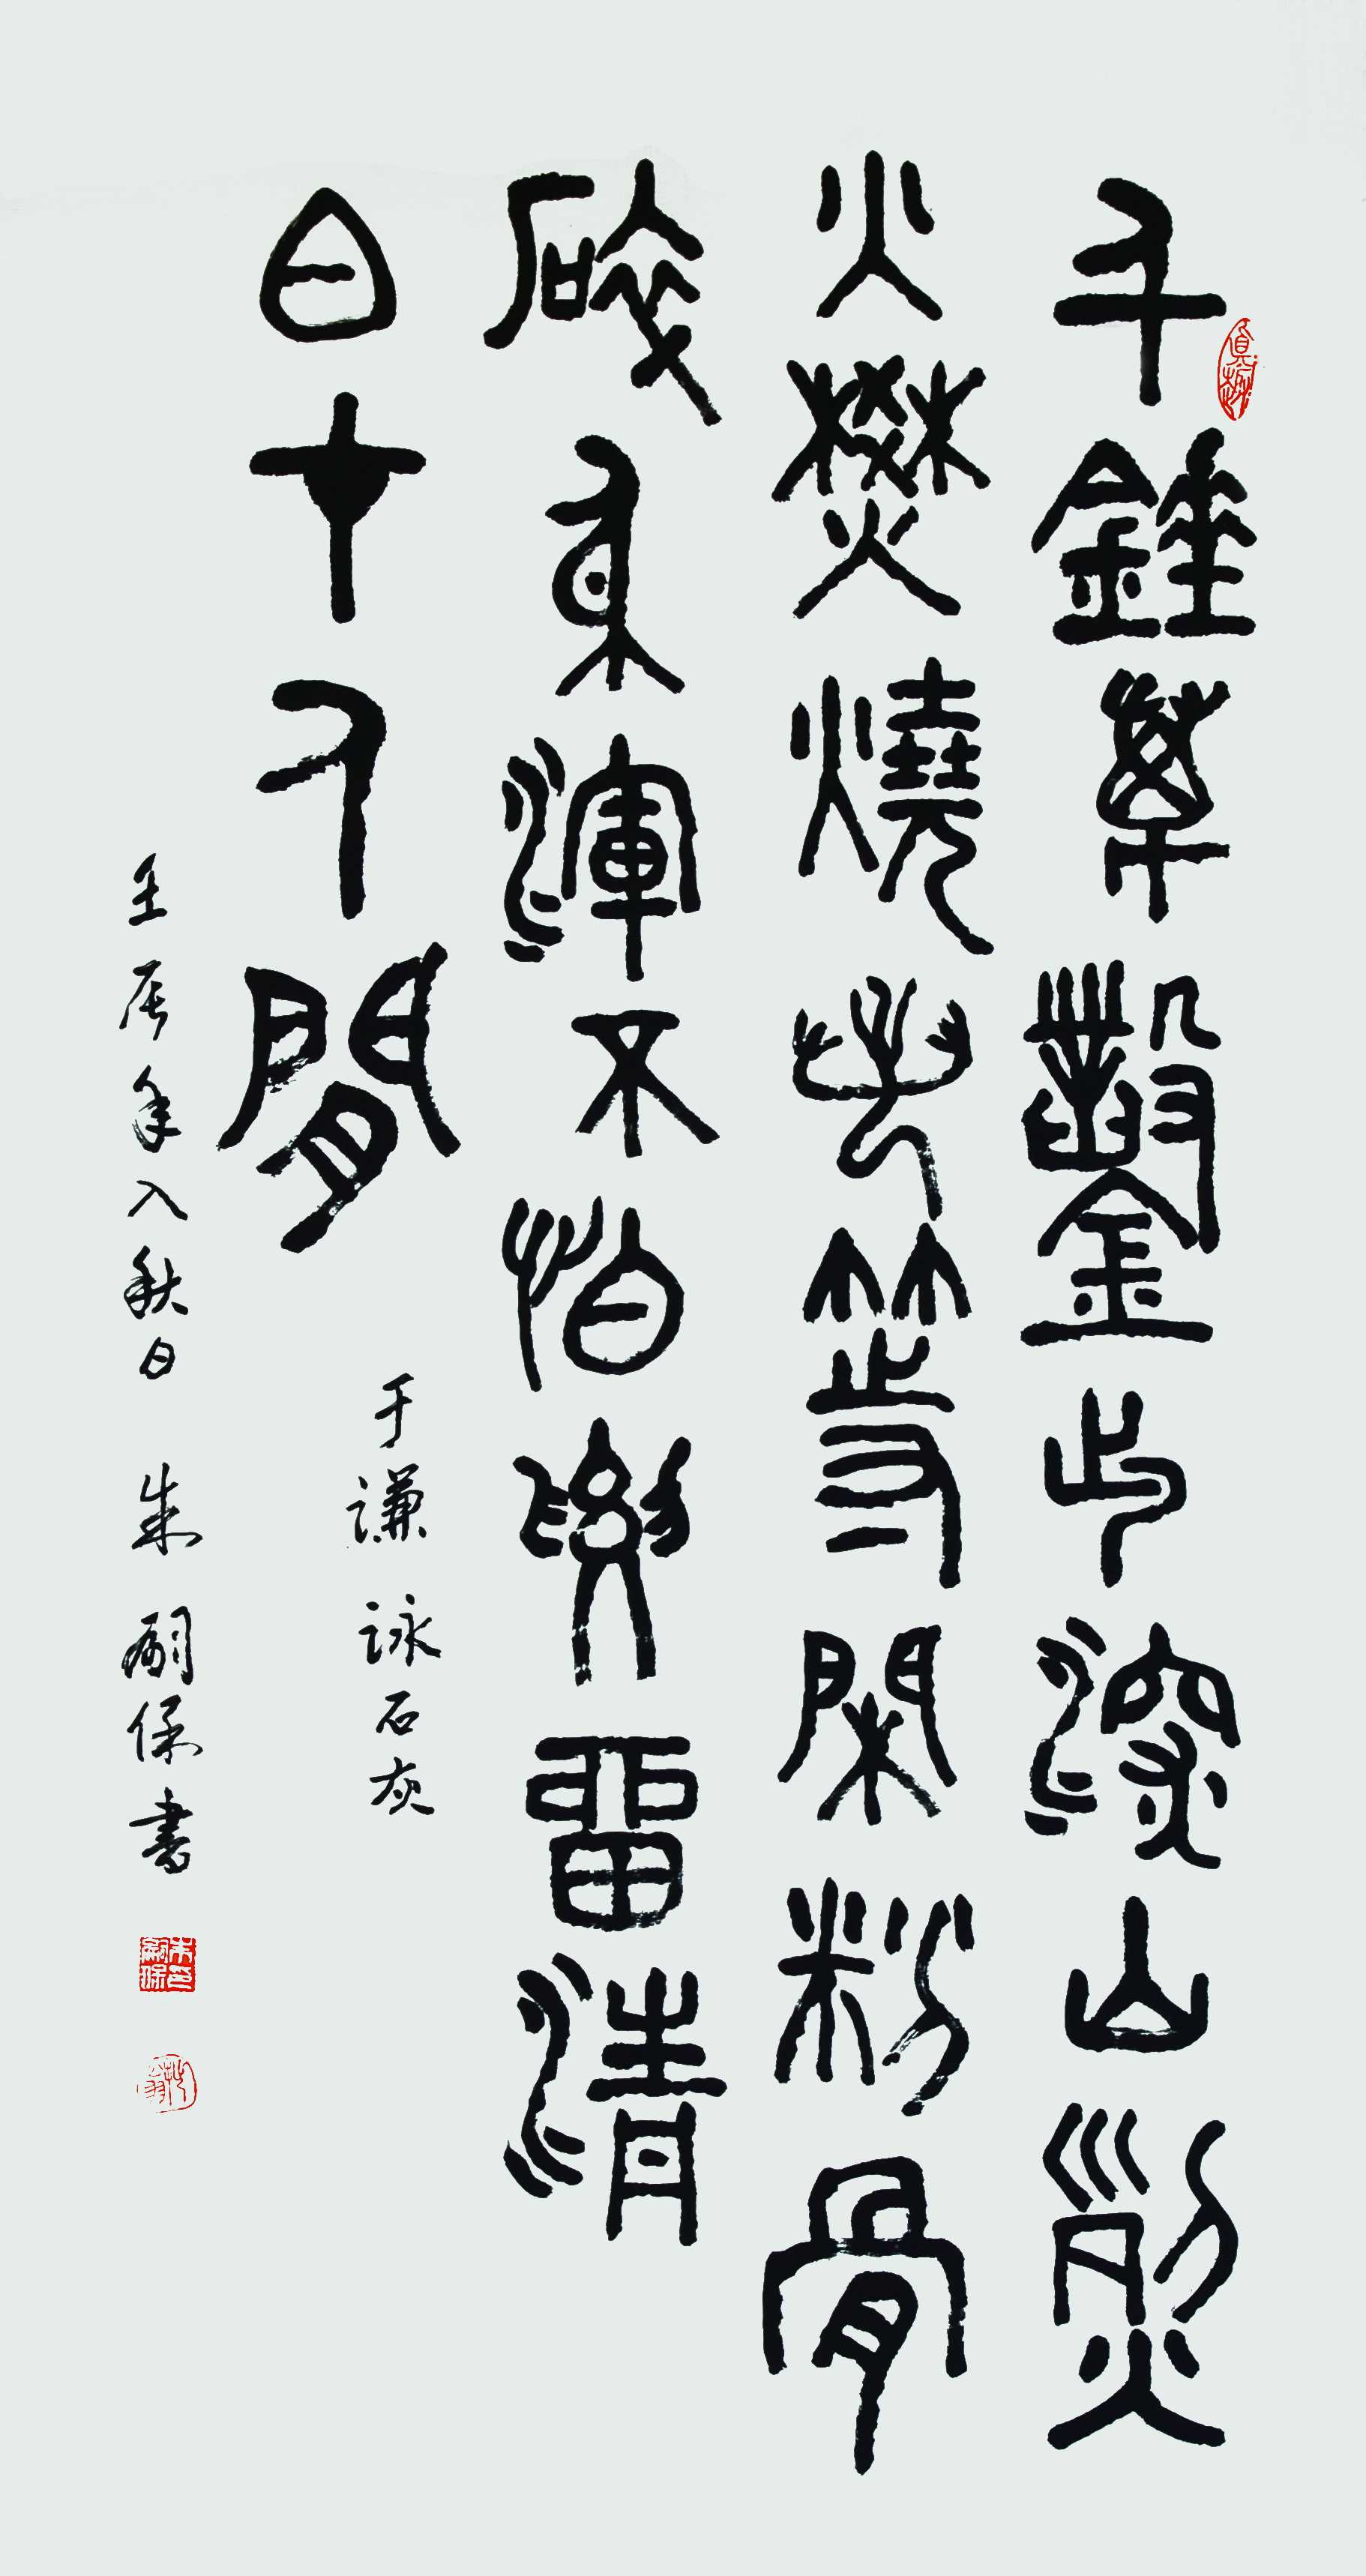 千錘萬鑿出深山烈
火焚燒若等閑粉骨
碎身渾不怕要留清
白在人間
于謙 詠石灰
壬辰年入秋日 朱嗣保書
朱嗣保印